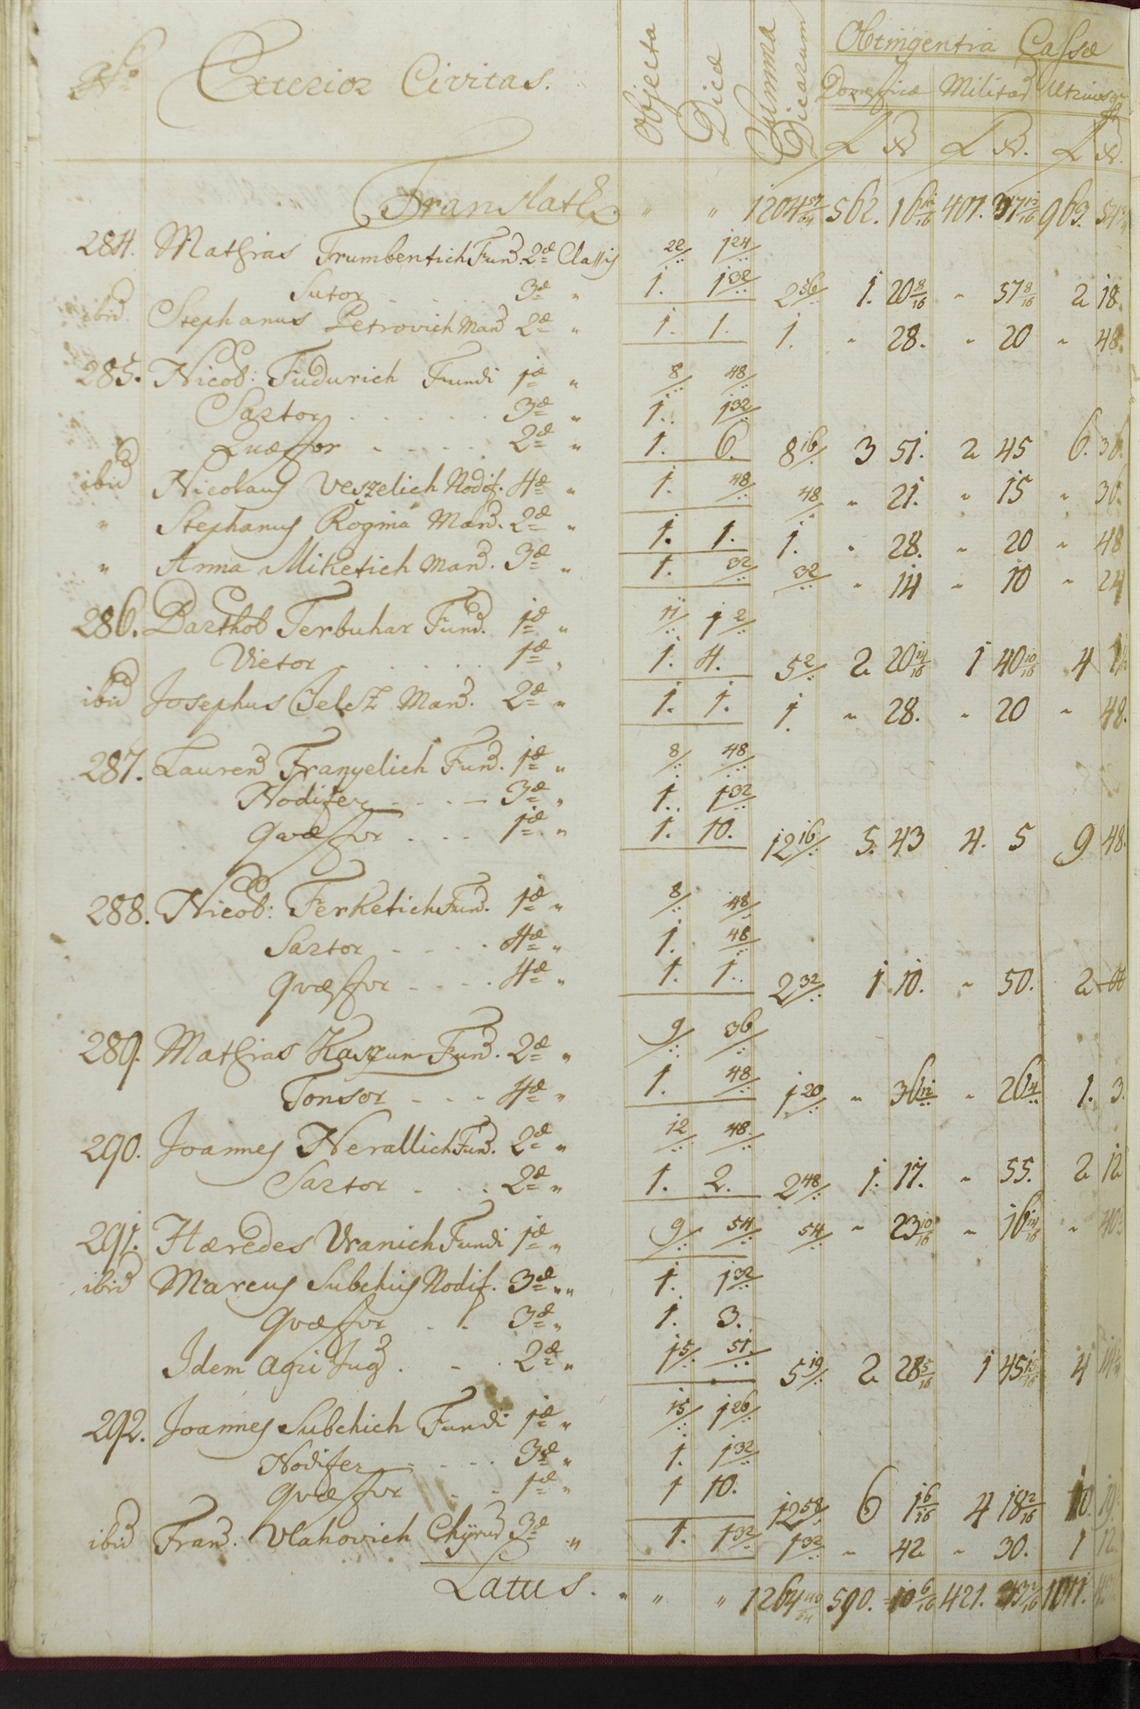 Nro Exterior Civitas. Objecta Dicæ Summa Dicarum Obtingentia Cassæ
Domesticæ Militaris Utriusque
Translatæ " " 1204 562. 16 401. 963.
284. Mathias Trumbentich Fund. 2dæ Classis 22 1 24
Sutor 3æ " 1. 1 32 2 56 1. 20 8/16 " 57 8/16 2 18.
ibid Stephanus Petrovich Mand 2dæ " 1. 1. 1. " 28. " 20 " 48.
285. Nicol: Fudurich Fundi 1æ " 8 48
Sartor 3æ " 1. 1 32
Quæstor 2dæ " 1. 6. 8 16 3 51. 2 45 6. 36.
ibid Nicolaus Veszelich Nodif. 4æ " 1. 48 48 " 21. " 15 " 36.
" Stephanus Rogina Mand. 2dæ " 1. 1. 1. " 28. " 20 " 48
" Anna Miketich Mand. 3æ " 1. 32 32 " 14 " 10 " 24
286. Barthol Terbuhar Fund. 1æ " 11 1 2
Vietor 1æ " 1. 4. 5 2 2 20 14/16 1 40 10/16 4 1
ibid Josephus Celesz Mand. 2dæ " 1. 1. 1. " 28. " 20 " 48.
287. Laurend Franyelich Fund. 1æ " 8 48
Nodifer 3æ " 1. 1 32
Quæstor 1æ " 1. 10. 12 16 5. 43 4. 5 9 48.
288. Nicol: Ferketich Fund. 1æ " 8 48
Sartor 4æ " 1. 48
Quæstor 4æ " 1. 1. 2 32 1 10. " 50. 2
289. Mathias Kaszun Fund. 2dæ " 9 36
Tonsor 4æ " 1. 48 1 20 " 36 12 " 26 4 1. 3.
290. Joannes Nerallich Fund. 2dæ " 12 48
Sartor 2dæ " 1. 2. 2 48 1. 17. " 55. 2 12
291. Hæredes Vranich Fundi 1æ " 9 54 54 " 23 10/16 " 16 14/16 " 40
ibid Marcus Subchiis Nodif. 3æ " 1. 1 32
Quæstor 3æ " 1. 3.
Idem agri Jug 2dæ " 15 51 5 19 2 28 5/16 1 45 15/16 4
292. Joannes Subchich Fundi 1æ " 15 1 26
Nodifer 3æ " 1. 1 32
Quæstor 1æ " 1 10. 12 58 6 1 6/16 4 18 12/16 10. 19
ibid Frand. Vlahovich Chyrurd 3æ " 1. 1 32 1 32 " 42 " 30. 1 12
Latus. " " " 1264 590. 10 6/16 421. 43 1011.